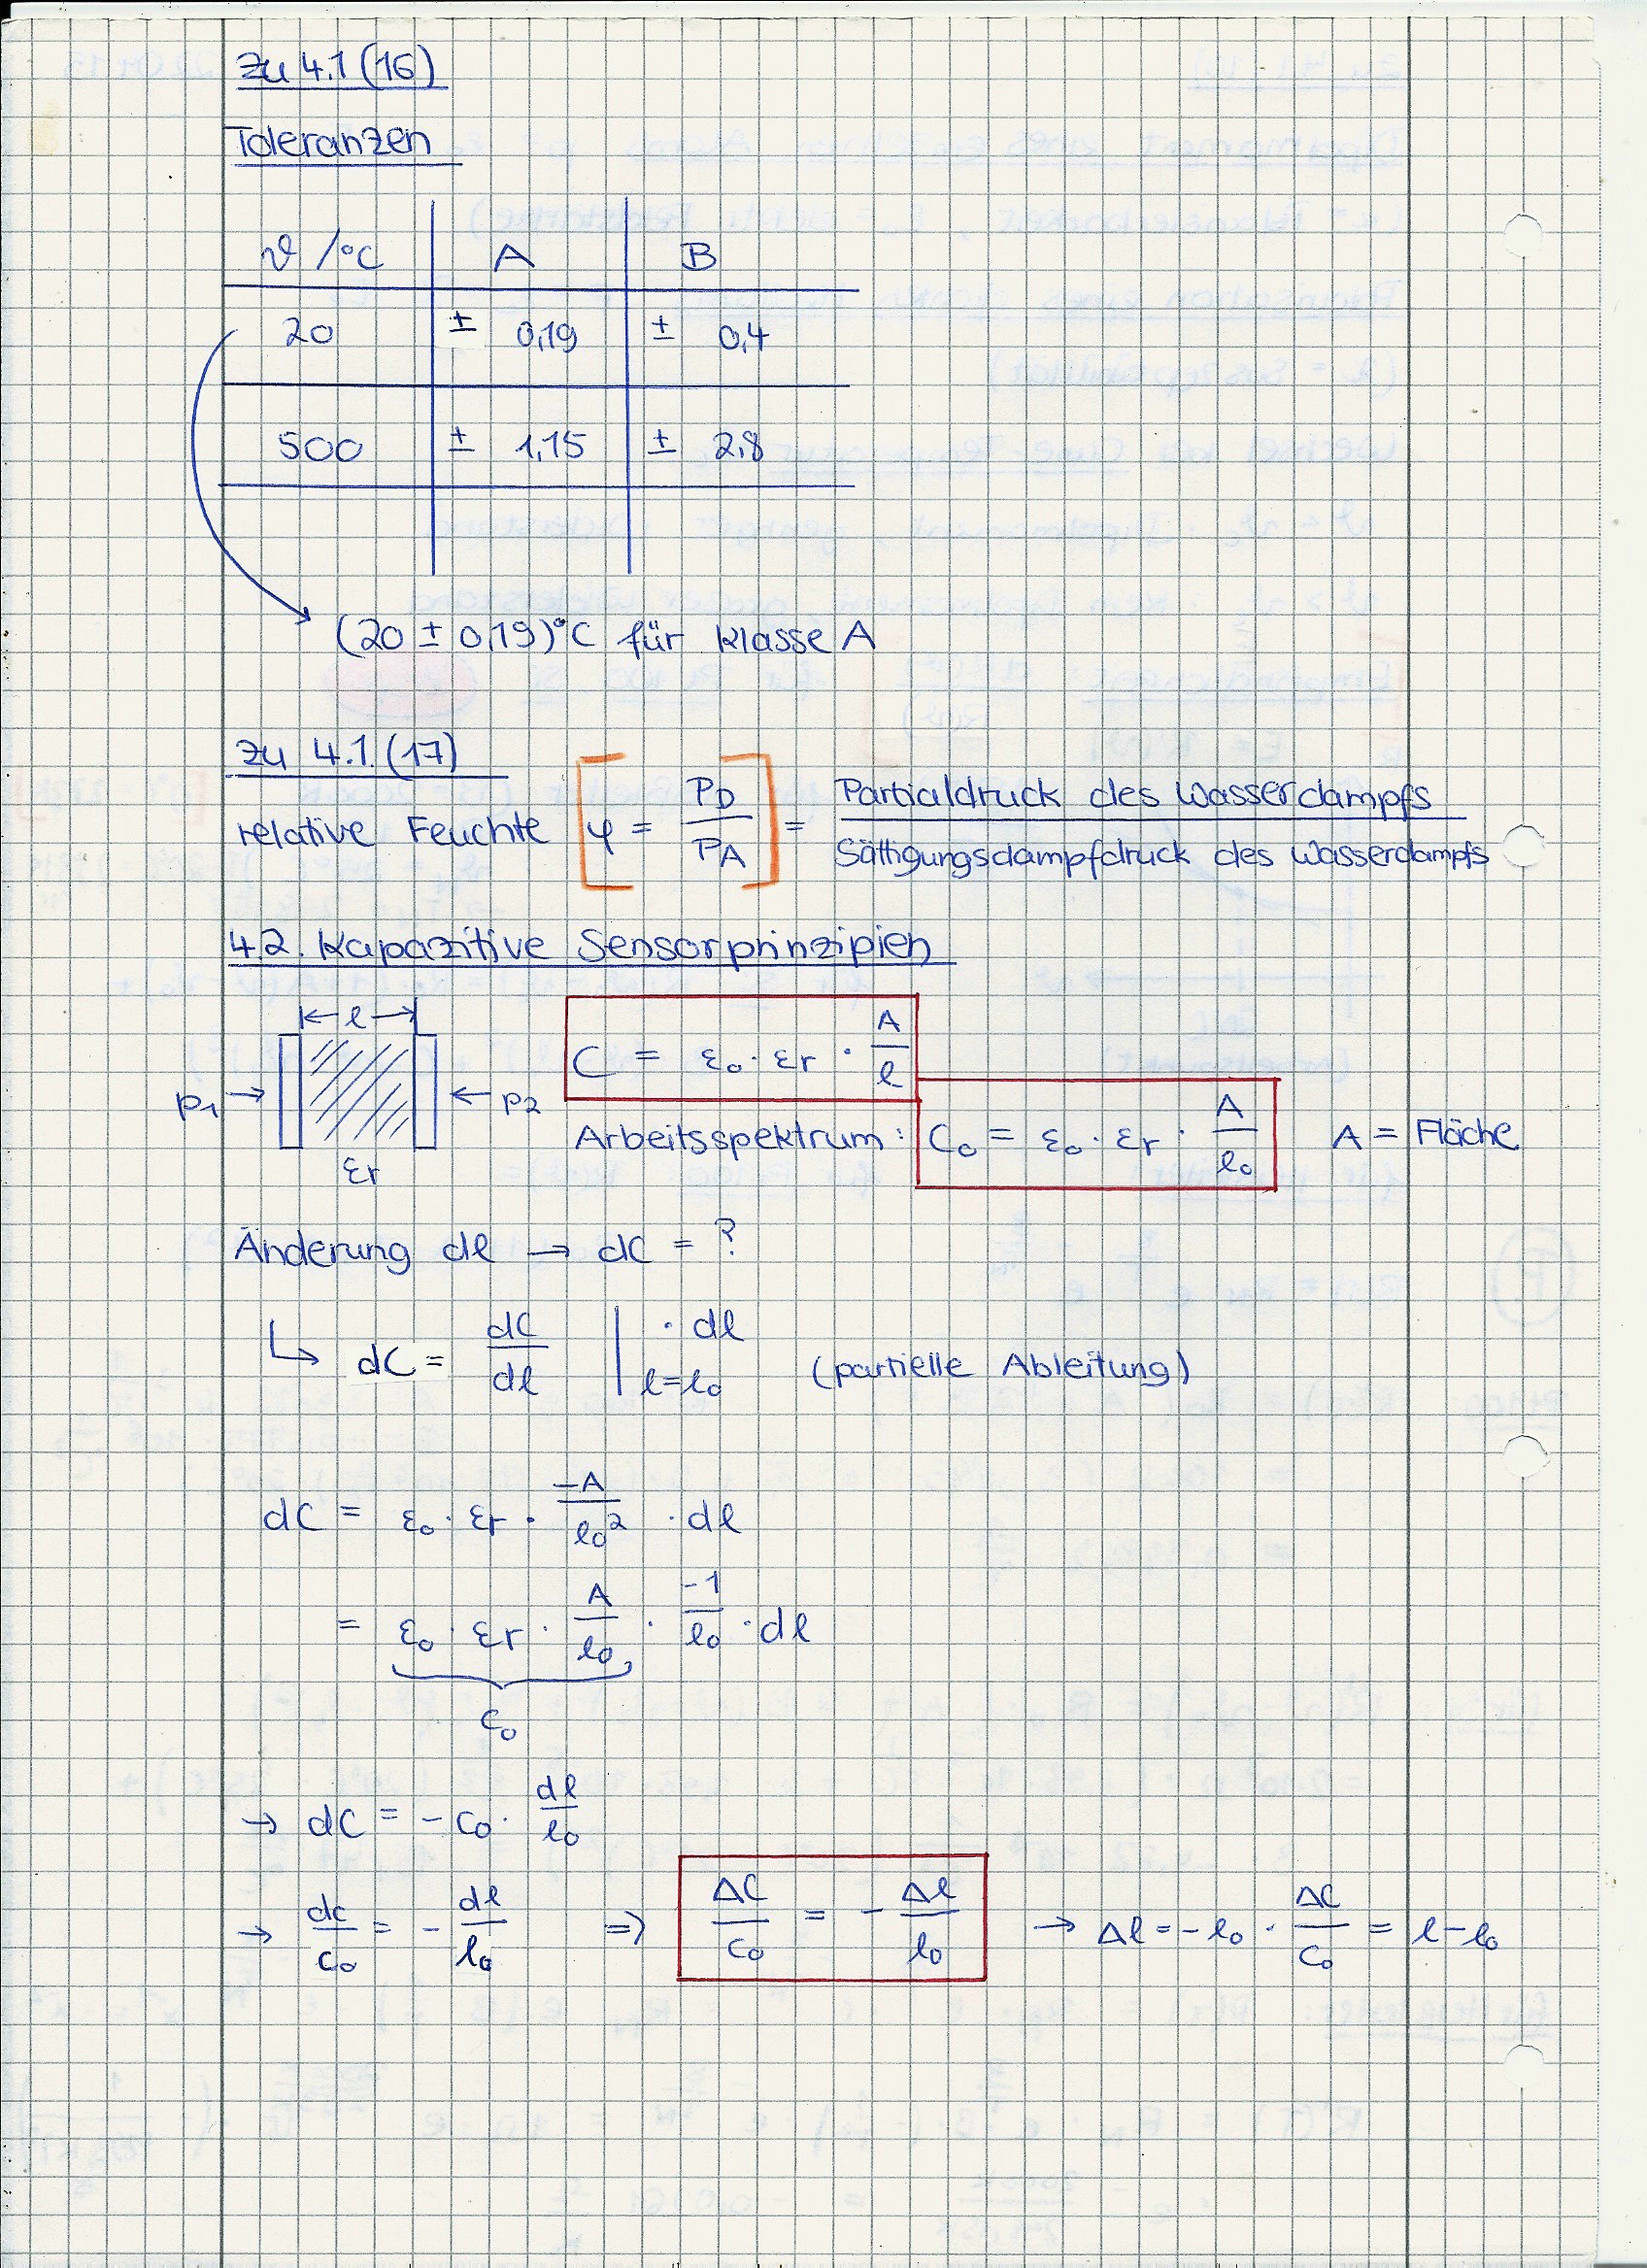 zu 4.1 (16)
Toleranzen
ϑ /°C A B
20 ± 0,19 ± 0,4
500 ± 1,15 ± 2,8
(20 ± 0,19)°C für Klasse A
zu 4.1. (17)
relative Feuchte [φ = P_D / P_A] = Partialdruck des Wasserdampfs / Sättigungsdampfdruck des Wasserdampfs
4.2. Kapazitive Sensorprinzipien
|← l →|
p₁ → ← p₂
εr
C = ε₀ · εr · A / l
Arbeitsspektrum: C₀ = ε₀ · εr · A / l₀ A = Fläche
Änderung dl → dC = ?
↳ dC = dC / dl | l=l₀ · dl (partielle Ableitung)
dC = ε₀ · εr · −A / l₀² · dl
= ε₀ · εr · A / l₀ · −1 / l₀ · dl
C₀
→ dC = − C₀ · dl / l₀
→ dC / C₀ = − dl / l₀ ⇒ ΔC / C₀ = − Δl / l₀ → Δl = − l₀ · ΔC / C₀ = l − l₀